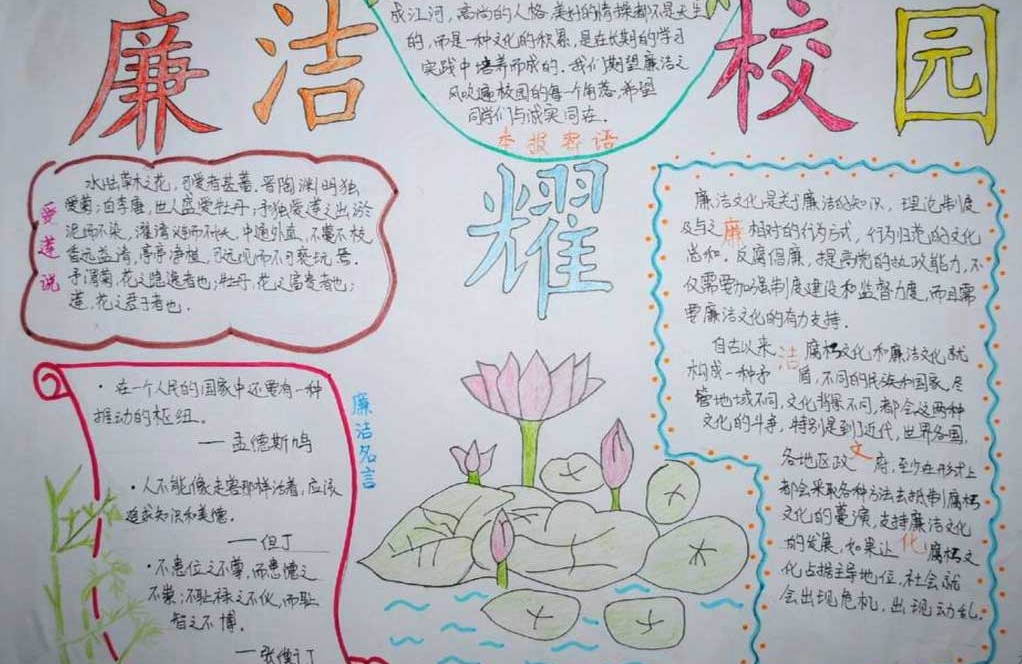 廉洁
校园
耀
成江河，高尚的人格、美好的情操都不是天生
的，而是一种文化的积累，是在长期的学习
实践中培养而成的。我们期望廉洁之
风吹遍校园的每个角落，希望
同学们与诚实同在。
本报寄语
爱莲说
水陆草木之花，可爱者甚蕃。晋陶渊明独
爱菊；自李唐，世人盛爱牡丹；予独爱莲之出淤
泥而不染，濯清涟而不妖，中通外直，不蔓不枝，
香远益清，亭亭净植，可远观而不可亵玩焉。
予谓菊，花之隐逸者也；牡丹，花之富贵者也；
莲，花之君子者也。
廉洁名言
·在一个人民的国家中还要有一种
推动的枢纽。
——孟德斯鸠
·人不能像走兽那样活着，应该
追求知识和美德。
——但丁
·不患位之不尊，而患德之
不崇；不耻禄之不伙，而耻
智之不博。
廉洁文化
廉洁文化是关于廉洁的知识、理论制度
及与之相对的行为方式、行为归范的文化
总和。反腐倡廉，提高党的执政能力，不
仅需要加强制度建设和监督力度，而且需
要廉洁文化的有力支持。
自古以来腐朽文化和廉洁文化就
构成一种矛盾，不同的民族和国家，尽
管地域不同，文化背景不同，都会这两种
文化的斗争，特别是到了近代，世界各国，
各地区政府，至少在形式上
都会采取各种方法去抵制腐朽
文化的蔓演，支持廉洁文化
的发展，如果让腐朽文
化占据主导地位，社会就
会出现危机，出现动乱。